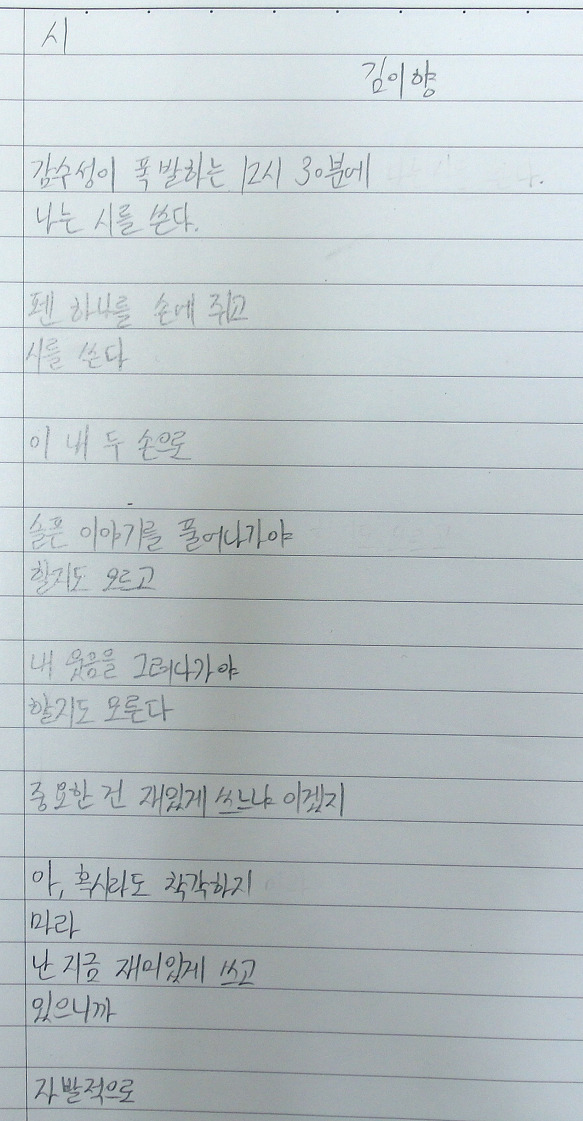 시
김이향
감수성이 폭발하는 12시 30분에
나는 시를 쓴다.
펜 하나를 손에 쥐고
시를 쓴다
이 내 두 손으로
슬픈 이야기를 풀어나가야
할지도 모르고
내 웃음을 그려나가야
할지도 모른다
중요한 건 재밌게 쓰느냐 이겠지
아, 혹시라도 착각하지
마라
난 지금 재미있게 쓰고
있으니까
자발적으로